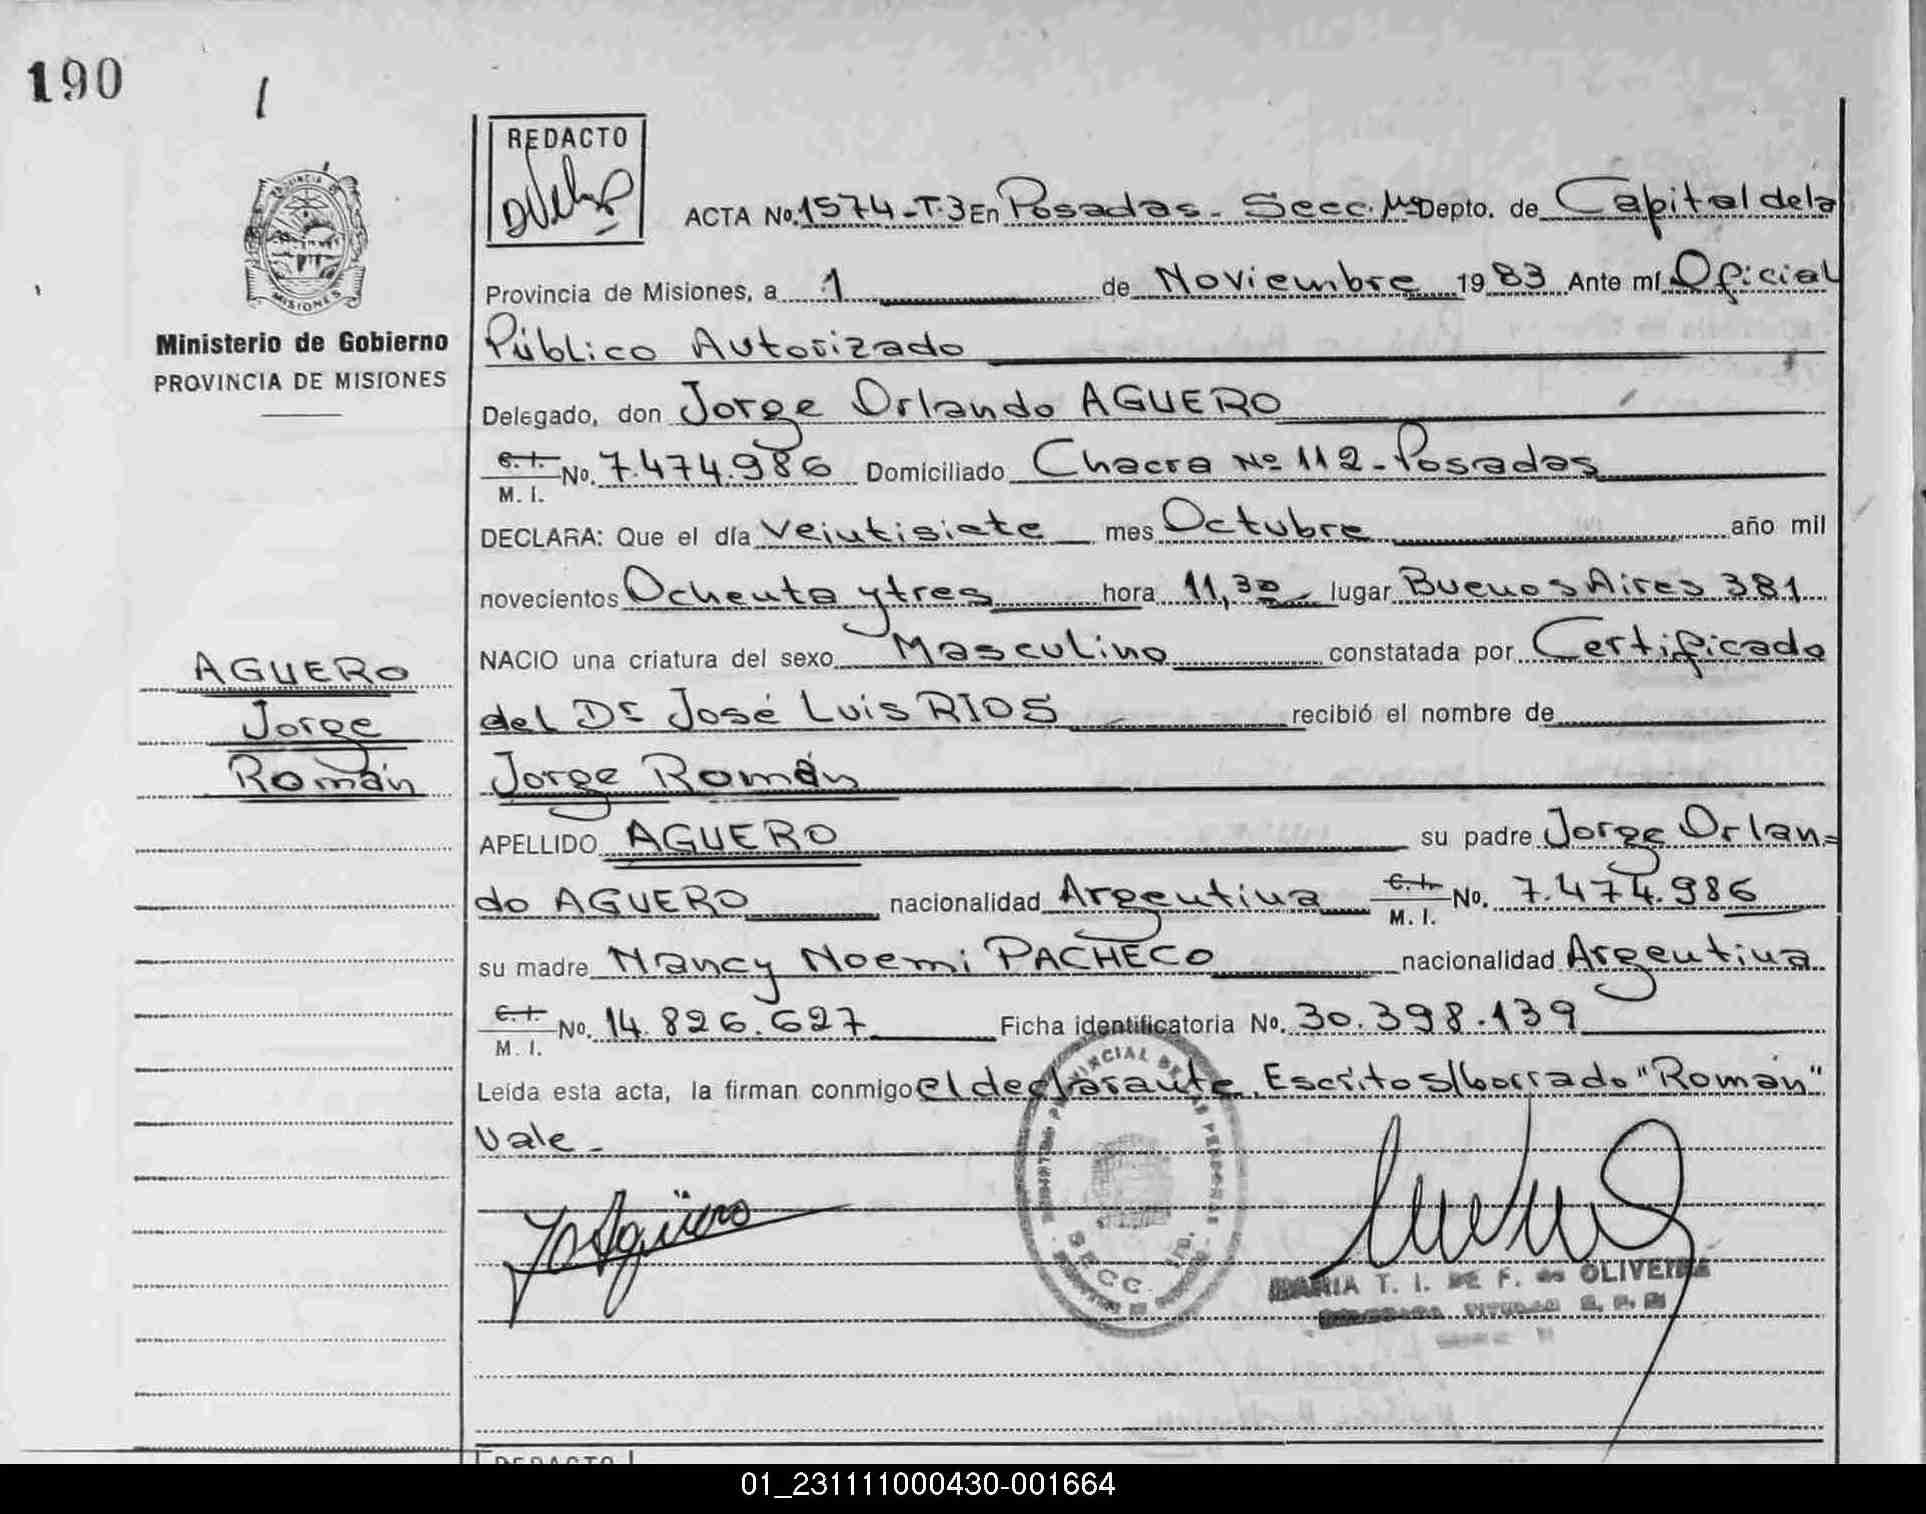 190
REDACTO
PROVINCIA DE
MISIONES
Ministerio de Gobierno
PROVINCIA DE MISIONES
ACTA No. 1574-T.3 En Posadas - Secc. Depto. de Capital de la
Provincia de Misiones, a 1 de Noviembre 1983 Ante mí Oficial
Público Autorizado
Delegado, don Jorge Orlando AGUERO
C.I. M.I. No. 7.474.986 Domiciliado Chacra Nº 112 - Posadas
DECLARA: Que el día Veintisiete mes Octubre año mil
novecientos Ochenta y tres hora 11,30 lugar Buenos Aires 381
NACIO una criatura del sexo Masculino constatada por Certificado
del Dr José Luis RIOS recibió el nombre de
Jorge Román
AGUERO
Jorge
Román
APELLIDO AGUERO su padre Jorge Orlan=
do AGUERO nacionalidad Argentina C.I. M.I. No. 7.474.986
su madre Nancy Noemi PACHECO nacionalidad Argentina
C.I. M.I. No. 14.826.627 Ficha identificatoria No. 30.398.139
Leída esta acta, la firman conmigo el declarante. Escrito s/borrado "Román"
Vale -
Agüero
MARIA T. I. DE F. de OLIVEIRA
SECC.
REDACTO
01_231111000430-001664